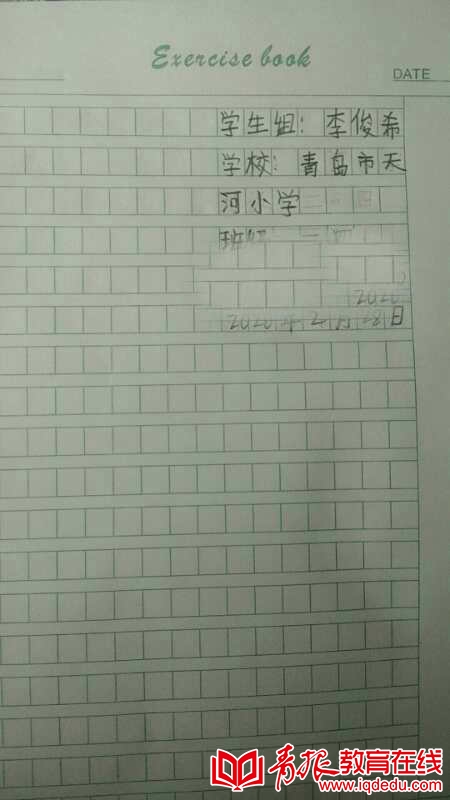 Exercise book
DATE
学生组：李俊希
学校：青岛市天
河小学
班
2020
2020年2月28日
青报教育在线
www.iqdedu.com